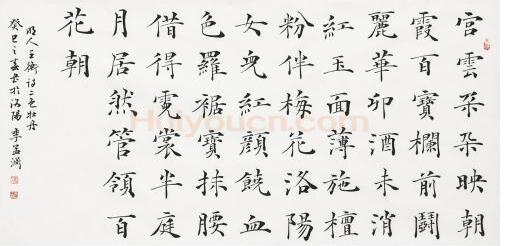 宮雲朵朵映朝
霞百寶欄前鬪
麗華卯酒未消
紅玉面薄施檀
粉伴梅花洛陽
女兒紅顏饒血
色羅裾寶抹腰
借得霓裳半庭
月居然管領百
花朝
明人王衡詩二色牡丹
癸巳之春書於洛陽 李孟
Huiyoucn.com